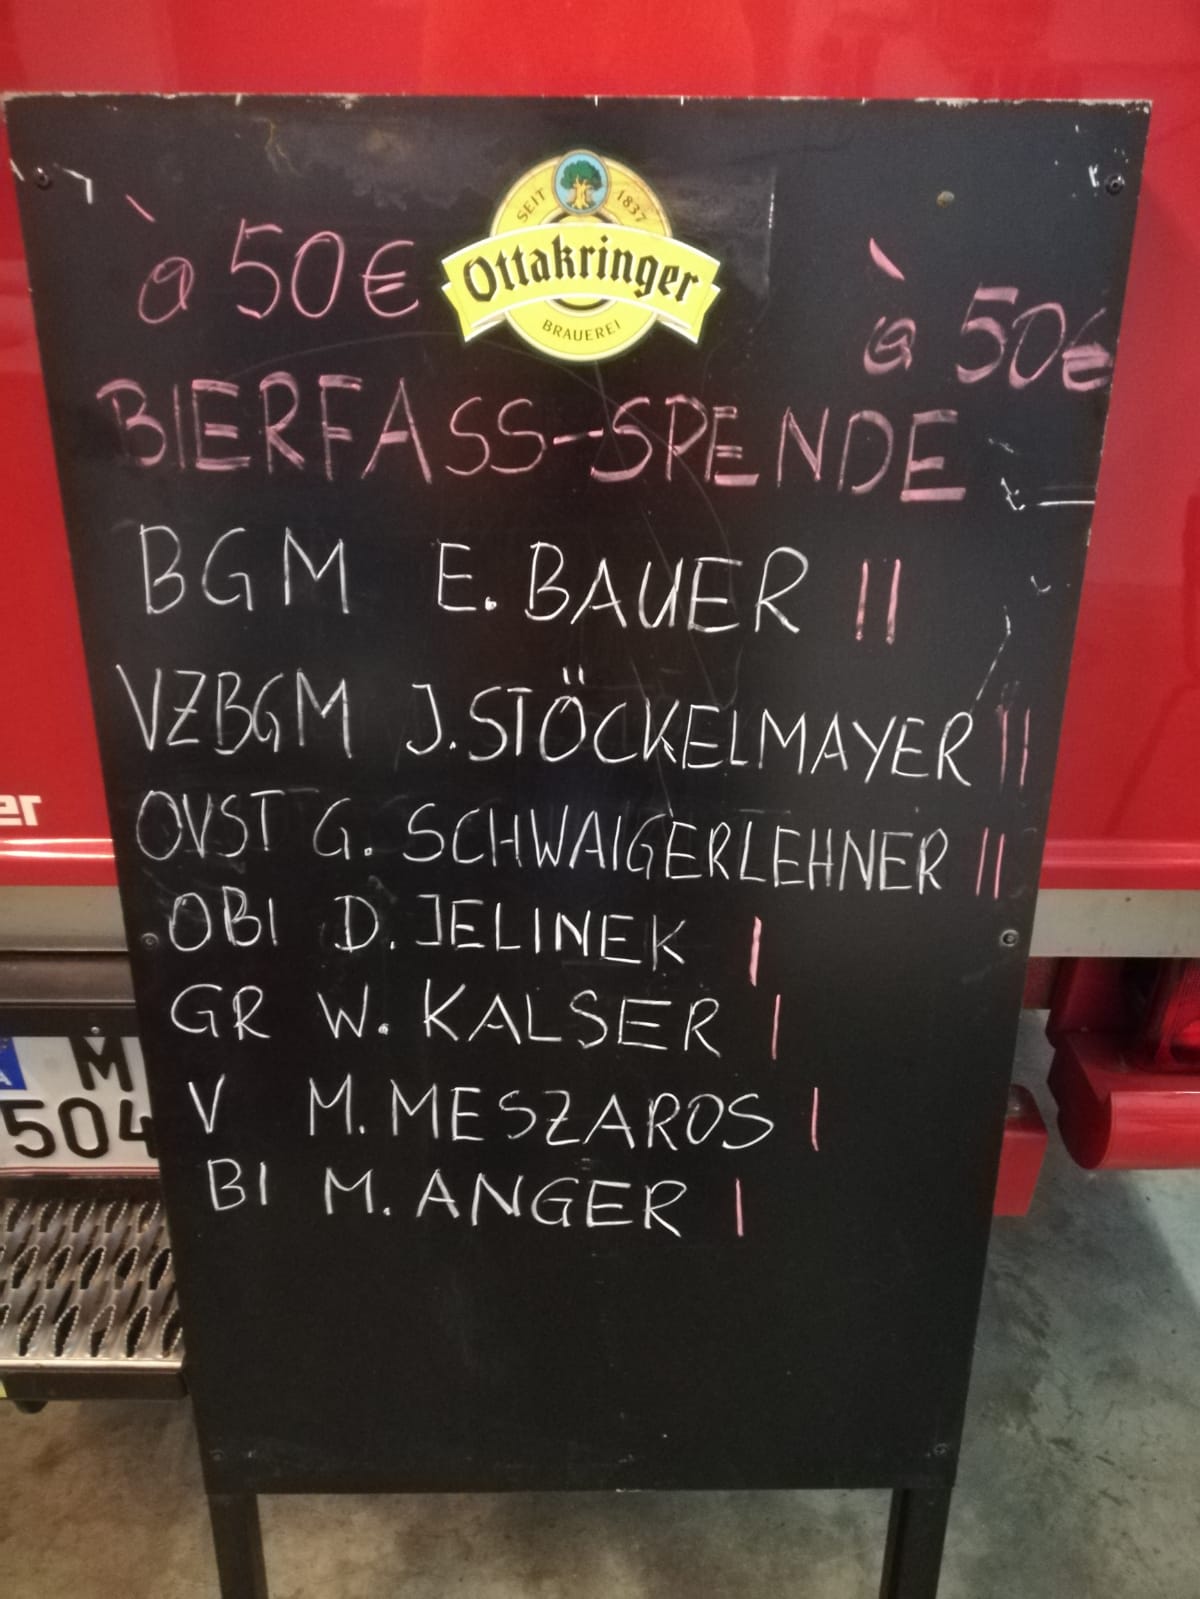 SEIT 1837
Ottakringer
BRAUEREI
à 50€
à 50€
BIERFASS-SPENDE
BGM E. BAUER II
VZBGM J. STÖCKELMAYER II
OVST G. SCHWAIGERLEHNER II
OBI D. JELINEK I
GR W. KALSER I
V M. MESZAROS I
BI M. ANGER I
er
A
M
504